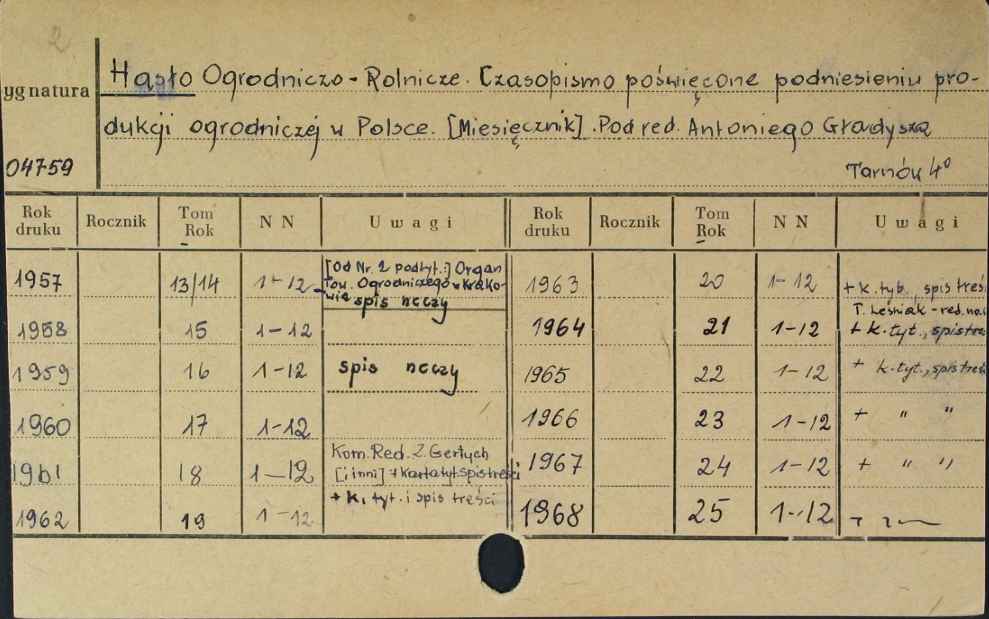 2
Hasło Ogrodniczo-Rolnicze. Czasopismo poświęcone podniesieniu pro-
ygnatura
dukcji ogrodniczej w Polsce. [Miesięcznik]. Pod red. Antoniego Gładysza
04759 Tarnów 4°
Rok druku Rocznik Tom Rok N N Uwagi Rok druku Rocznik Tom Rok N N Uwagi
1957 13/14 1-12 [Od Nr. 2 podtyt.:] Organ Tow. Ogrodniczego w Krakowie spis rzeczy 1963 20 1-12 + k. tyt., spis treś
1958 15 1-12 1964 21 1-12 T. Leśniak - red. + k. tyt., spis treś
1959 16 1-12 spis rzeczy 1965 22 1-12 + k. tyt., spis treś
1960 17 1-12 1966 23 1-12 + " "
1961 18 1-12 Kom. Red. Z. Gertych [i inni] + karta tyt. spis treści 1967 24 1-12 + " "
1962 19 1-12 + k. tyt. i spis treści 1968 25 1-12